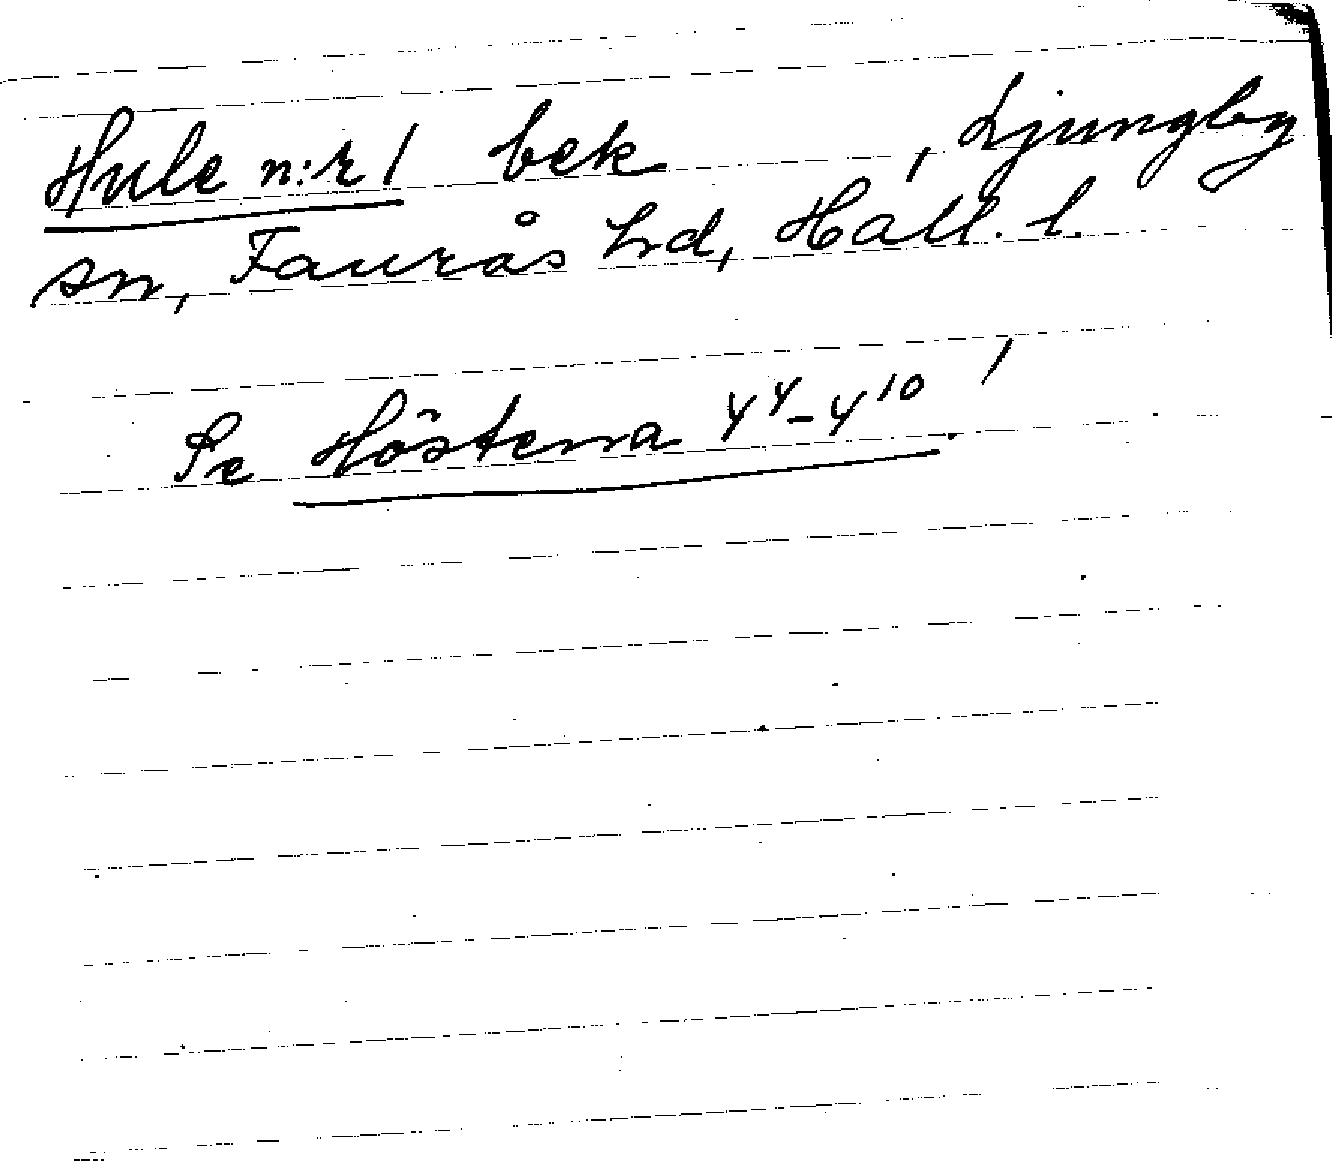 Hule n:r 1 bek , Ljungby
sn, Faurås hd, Hall. l.
Se Höstena 4⁴-4¹⁰.